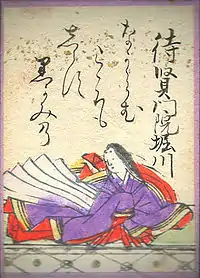 待賢門院堀川
なかからむ
こゝろも
しらす
黒かみの